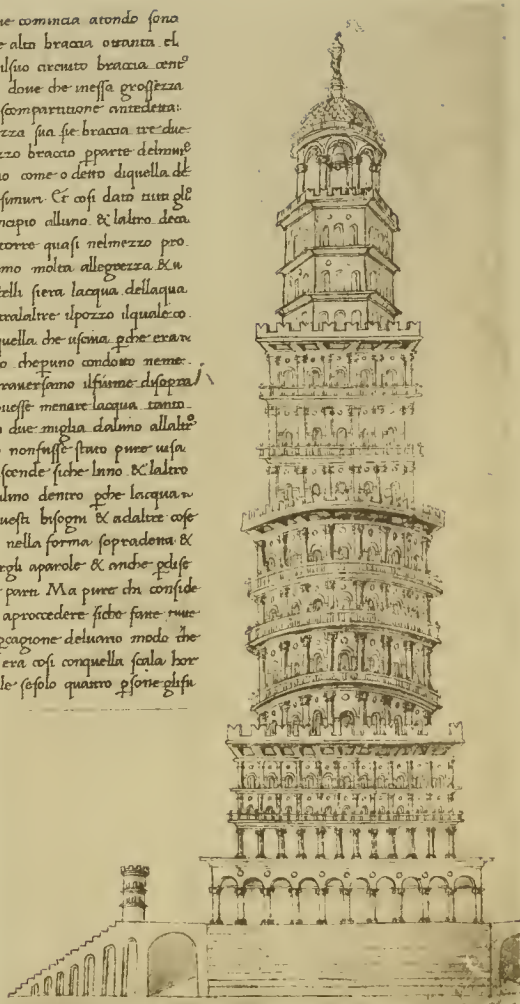 ue comincia atondo sono
e alto braccia ottanta el
ilsuo circuito braccia centº
dove che inessa grossezza
scompartitione antedetta:
zza sua sie braccia tre due
zzo braccio pparte delmurº
o come o detto diquella de
simuri. Et cosi dato tutti glº
ncipio alluno & laltro deca
torre quasi nelmezzo pro
mo molta allegrezza & u
telli siera lacqua dellaqua
tralaltre ilpozzo ilquale co
quella che usciua pche eran
o chepuno condotto neme
raversanno ilfiume disopra
uesse menare lacqua tanto
due miglia daluno allaltrº
nonfusse stato pure uisa
scende siche luno & laltro
alino dentro pche lacqua
uesti bisogni & adaltre cose
nella forma sopradetta &
egli aparole & anche pdise
parti Ma pure chi conside
aproccedere siche fatte tutte
pcagione deluario modo che
era cosi conquella scala hor
le sesolo quatro psone glifu